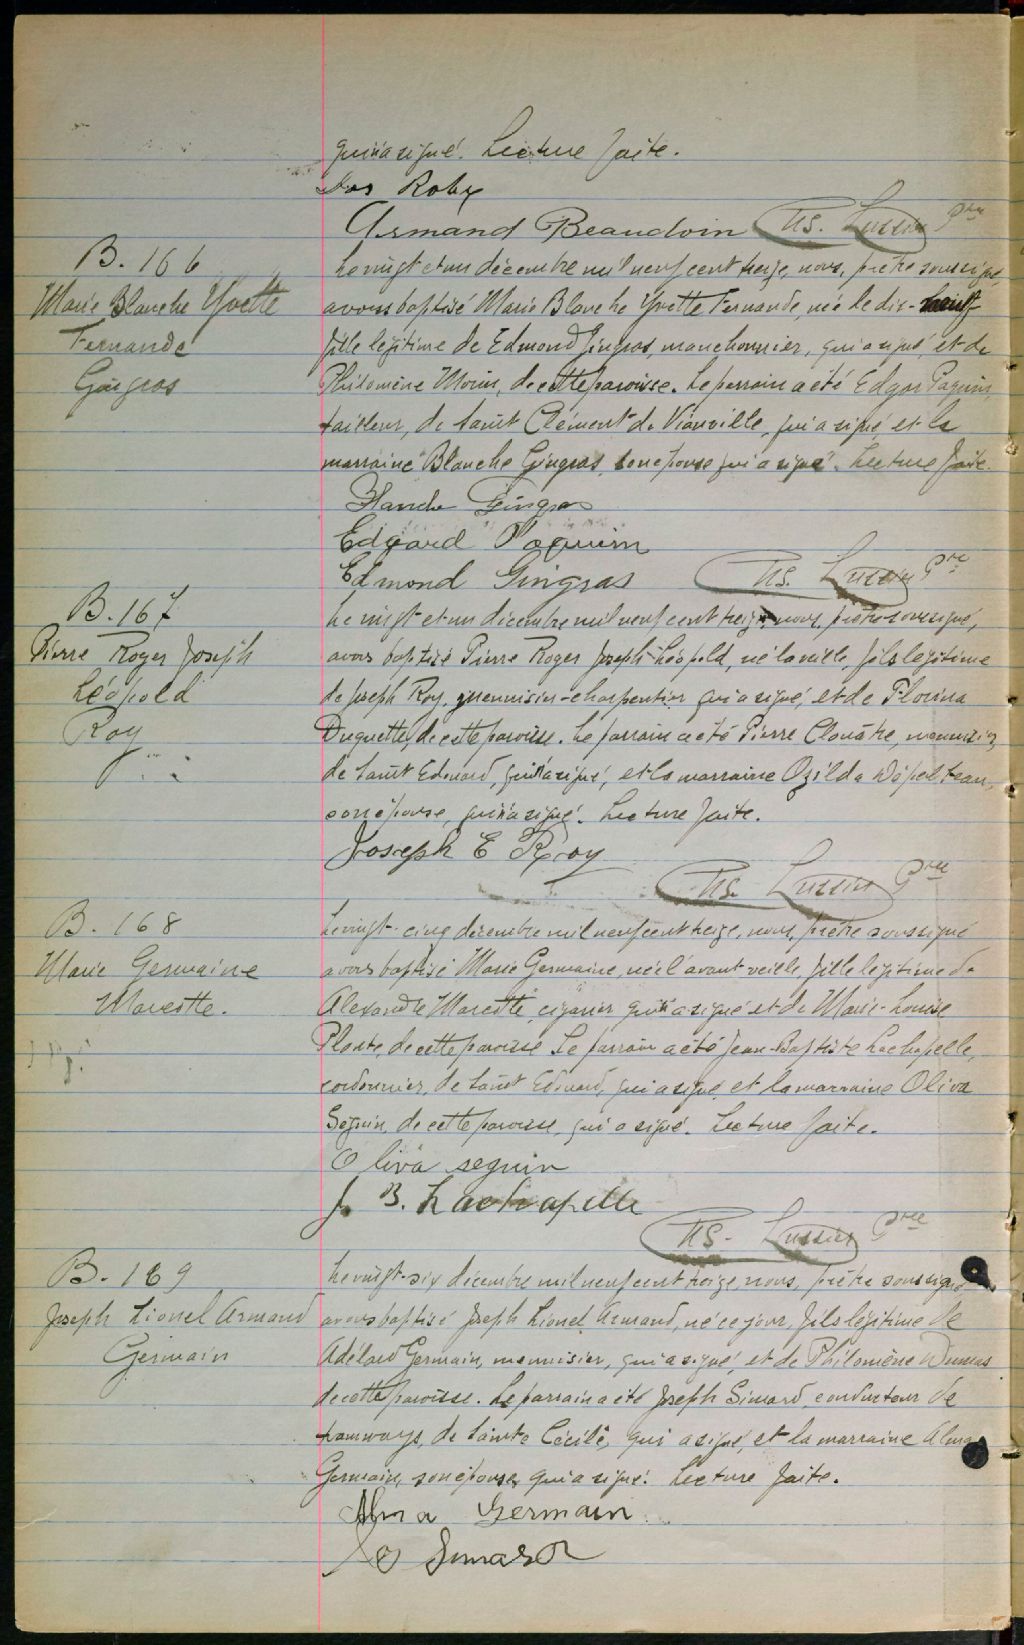 qui n'a signé. Lecture faite.
Das Roby
Armand Beaudoin Us. Lussier Ptre
B. 166
Marie Blanche Yvette
Fernande
Gingras
Le vingt et un décembre mil neuf cent treize, nous, prêtre soussigné,
avons baptisé Marie Blanche Yvette Fernande, née le dix-neuf
fille légitime de Edmond Gingras, manchonnier, qui a signé, et de
Philomène Morin, de cette paroisse. Le parrain a été Edgar Paquin,
tailleur, de Saint Clément de Viauville, qui a signé et la
marraine Blanche Gingras, son épouse qui a signé. Lecture faite.
Blanche Gingras
Edgard Paquin
Edmond Gingras Us. Lussier Ptre
B. 167
Pierre Roger Joseph
Léopold
Roy
Le vingt et un décembre mil neuf cent treize, nous, prêtre soussigné,
avons baptisé Pierre Roger Joseph Léopold, né la veille, fils légitime
de Joseph Roy, menuisier-charpentier qui a signé, et de Florina
Duquette, de cette paroisse. Le parrain a été Pierre Clouâtre, menuisier,
de Saint Edouard, qui n'a signé, et la marraine Ozilda Dépelteau,
son épouse, qui n'a signé. Lecture faite.
Joseph E Roy
Us. Lussier Ptre
B. 168
Marie Germaine
Marcotte.
Le vingt-cinq décembre mil neuf cent treize, nous, prêtre soussigné
avons baptisé Marie Germaine, née l'avant veille, fille légitime de
Alexandre Marcotte, cigarier qui n'a signé et de Marie-Louise
Plante, de cette paroisse Le parrain a été Jean-Baptiste Lachapelle,
cordonnier, de Saint Edouard, qui a signé et la marraine Oliva
Seguin, de cette paroisse, qui a signé. Lecture faite.
Oliva seguin
J. B. Lachapelle
Us. Lussier Ptre
B. 169
Joseph Lionel Armand
Germain
Le vingt-six décembre mil neuf cent treize, nous, prêtre soussigné
avons baptisé Joseph Lionel Armand, né ce jour, fils légitime de
Adélard Germain, menuisier, qui a signé, et de Philomène Dumas
de cette paroisse. Le parrain a été Joseph Simard, conducteur de
tramways, de Sainte Cécile, qui a signé, et la marraine Alma
Germain, son épouse, qui a signé. Lecture faite.
Alma Germain
Jos Simard